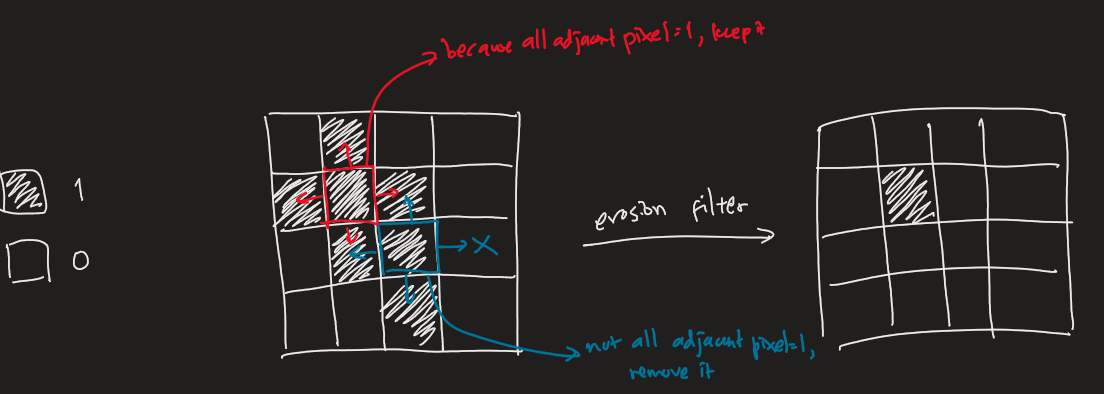 because all adjacent pixel=1, keep it
1
0
X
erosion filter
not all adjacent pixel=1,
remove it